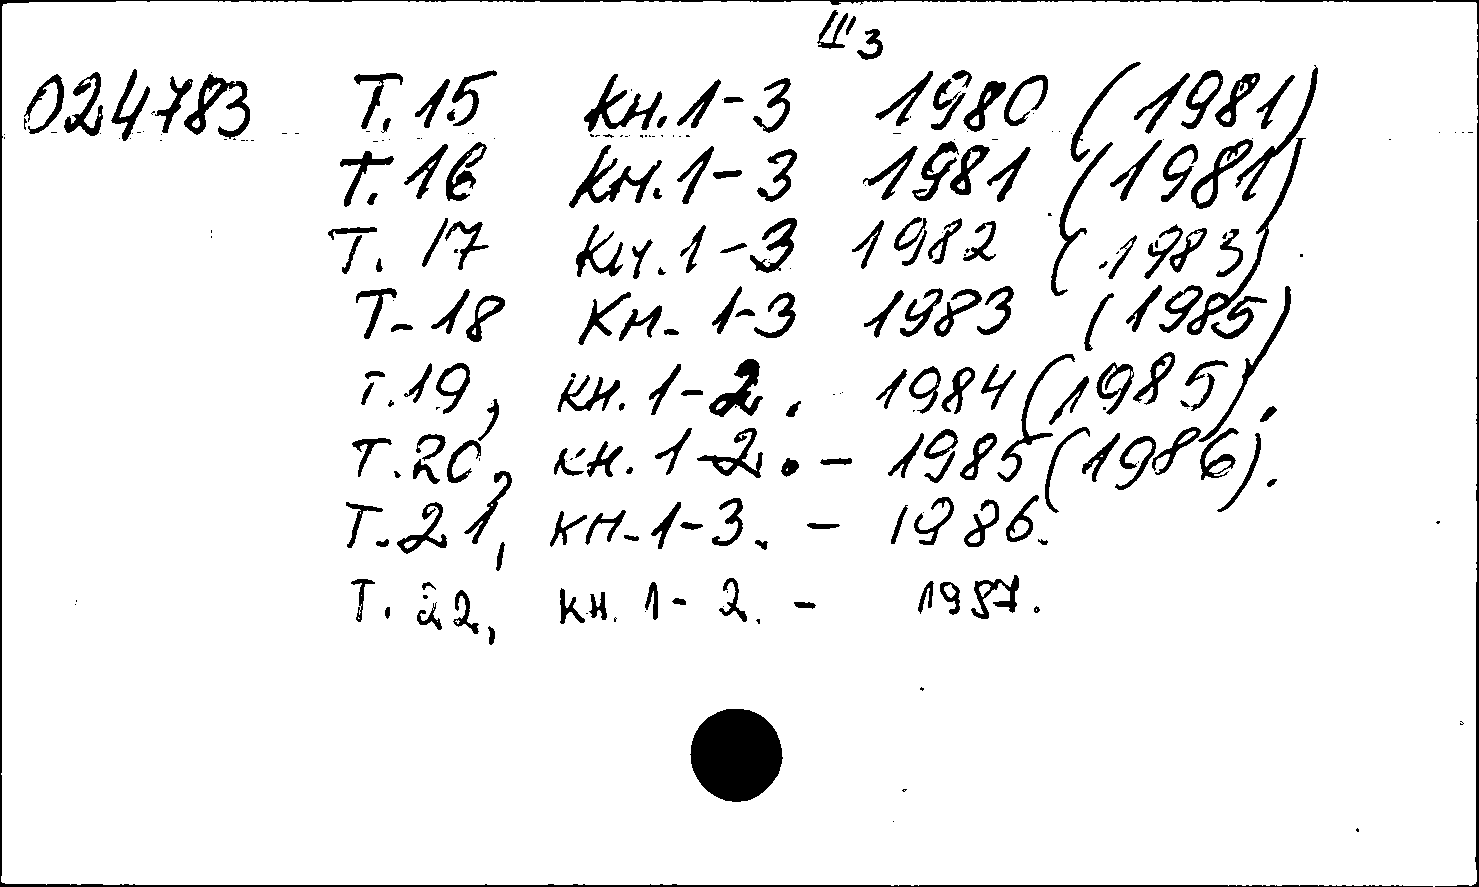 III 3
024783 Т. 15 Кн. 1-3 1980 (1981)
Т. 16 Кн. 1-3 1981 (1981)
Т. 17 Кн. 1-3 1982 (1983)
Т- 18 Кн- 1-3 1983 (1985)
т. 19, кн. 1-2. 1984 (1985).
Т. 20, кн. 1-2. - 1985 (1986).
Т. 21, кн- 1-3. - 1986.
Т. 22, кн. 1-2. - 1987.